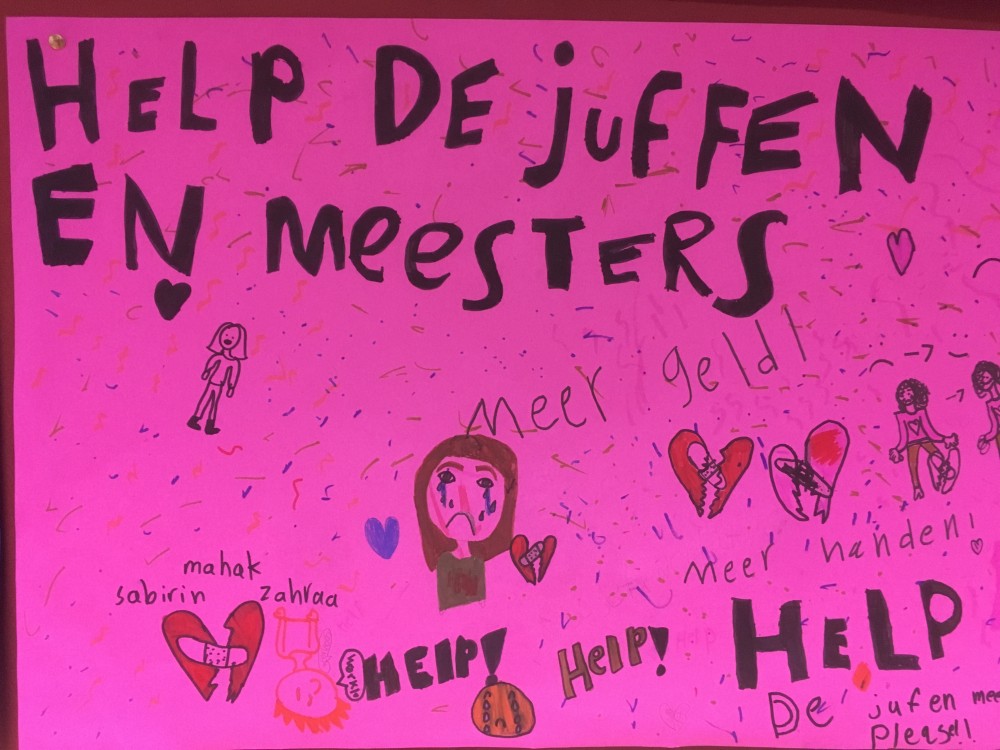 HELP DE juffEN
EN MEESTERS
Meer geld!
Meer handen!
mahak
sabirin zahraa
HElP!
HelP!
HELP
De jufen mee
Please!!